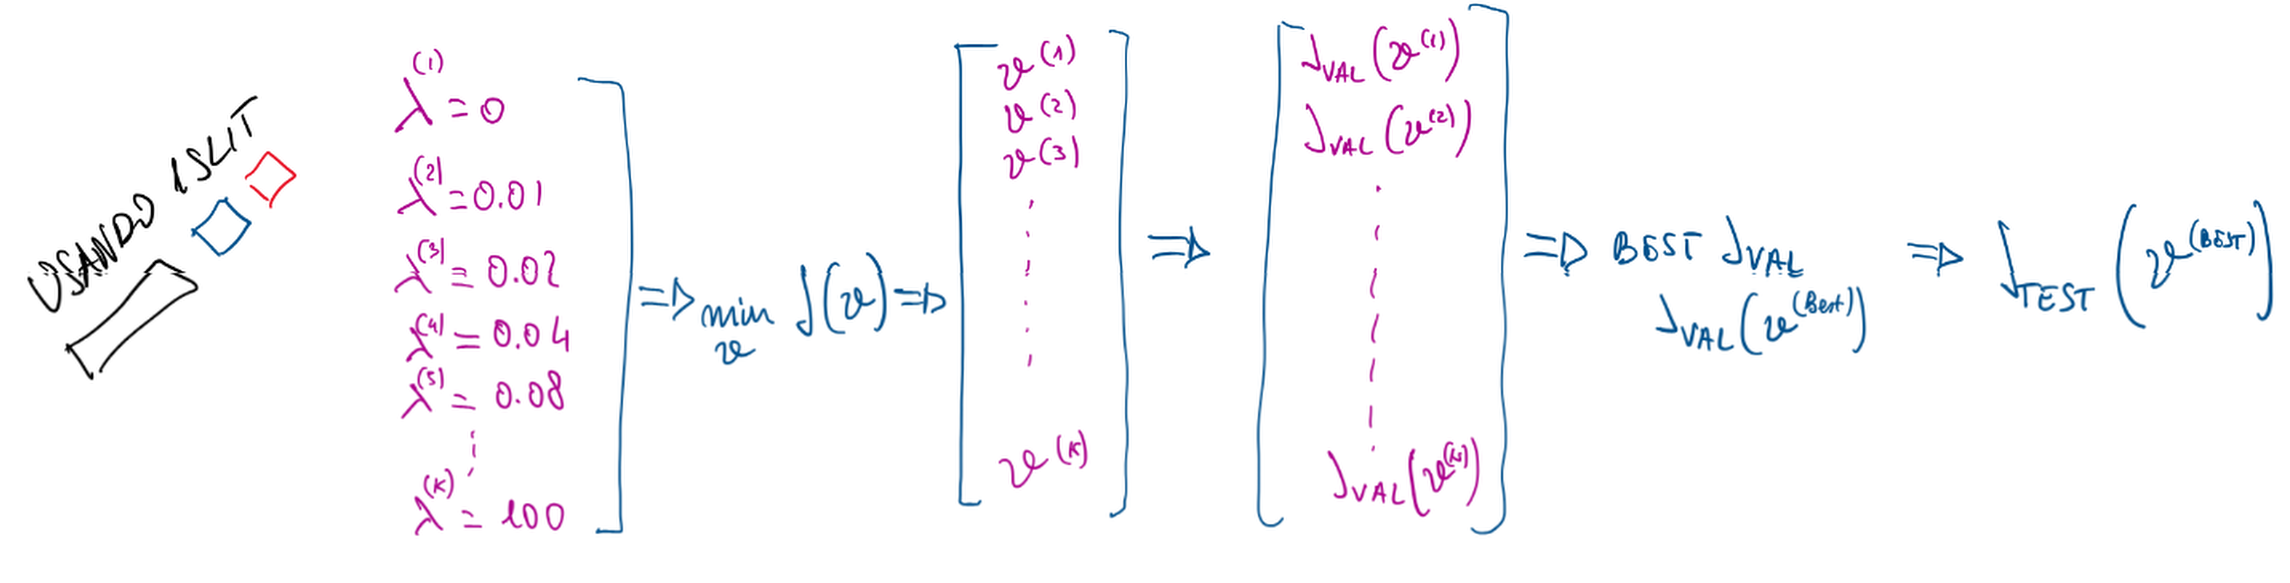 USANDO 1 SLIT
λ^(1) = 0
λ^(2) = 0.01
λ^(3) = 0.02
λ^(4) = 0.04
λ^(5) = 0.08
⋮
λ^(K) = 100
⇒ min_ϑ J(ϑ) ⇒
ϑ^(1)
ϑ^(2)
ϑ^(3)
⋮
ϑ^(K)
⇒
J_VAL(ϑ^(1))
J_VAL(ϑ^(2))
⋮
J_VAL(ϑ^(K))
⇒ BEST J_VAL
J_VAL(ϑ^(Best))
⇒ J_TEST(ϑ^(BEST))